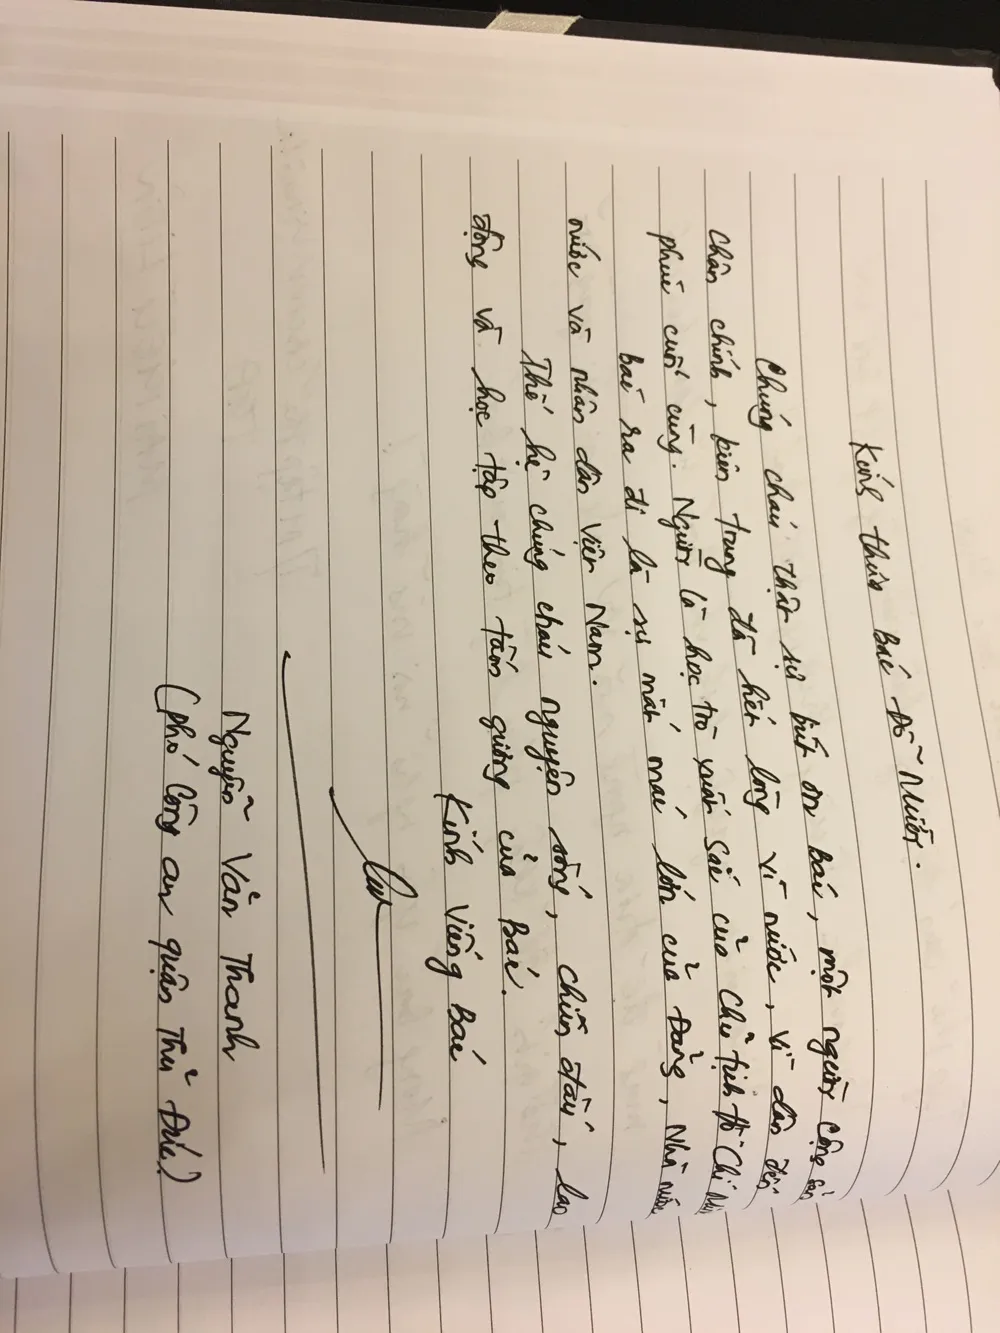 Kính thưa Bác Đỗ Mười.
Chúng cháu thật sự biết ơn Bác, một người cộng sản
chân chính, kiên trung đã hết lòng vì nước, vì dân đến
phút cuối cùng. Người là học trò xuất sắc của Chủ tịch Hồ Chí Minh
Bác ra đi là sự mất mát lớn của Đảng, Nhà nước
nước và nhân dân Việt Nam.
Thế hệ chúng cháu nguyện sống, chiến đấu, lao
động và học tập theo tấm gương của Bác.
Kính Viếng Bác
Nguyễn Văn Thanh
(Phó Công an quận Thủ Đức)